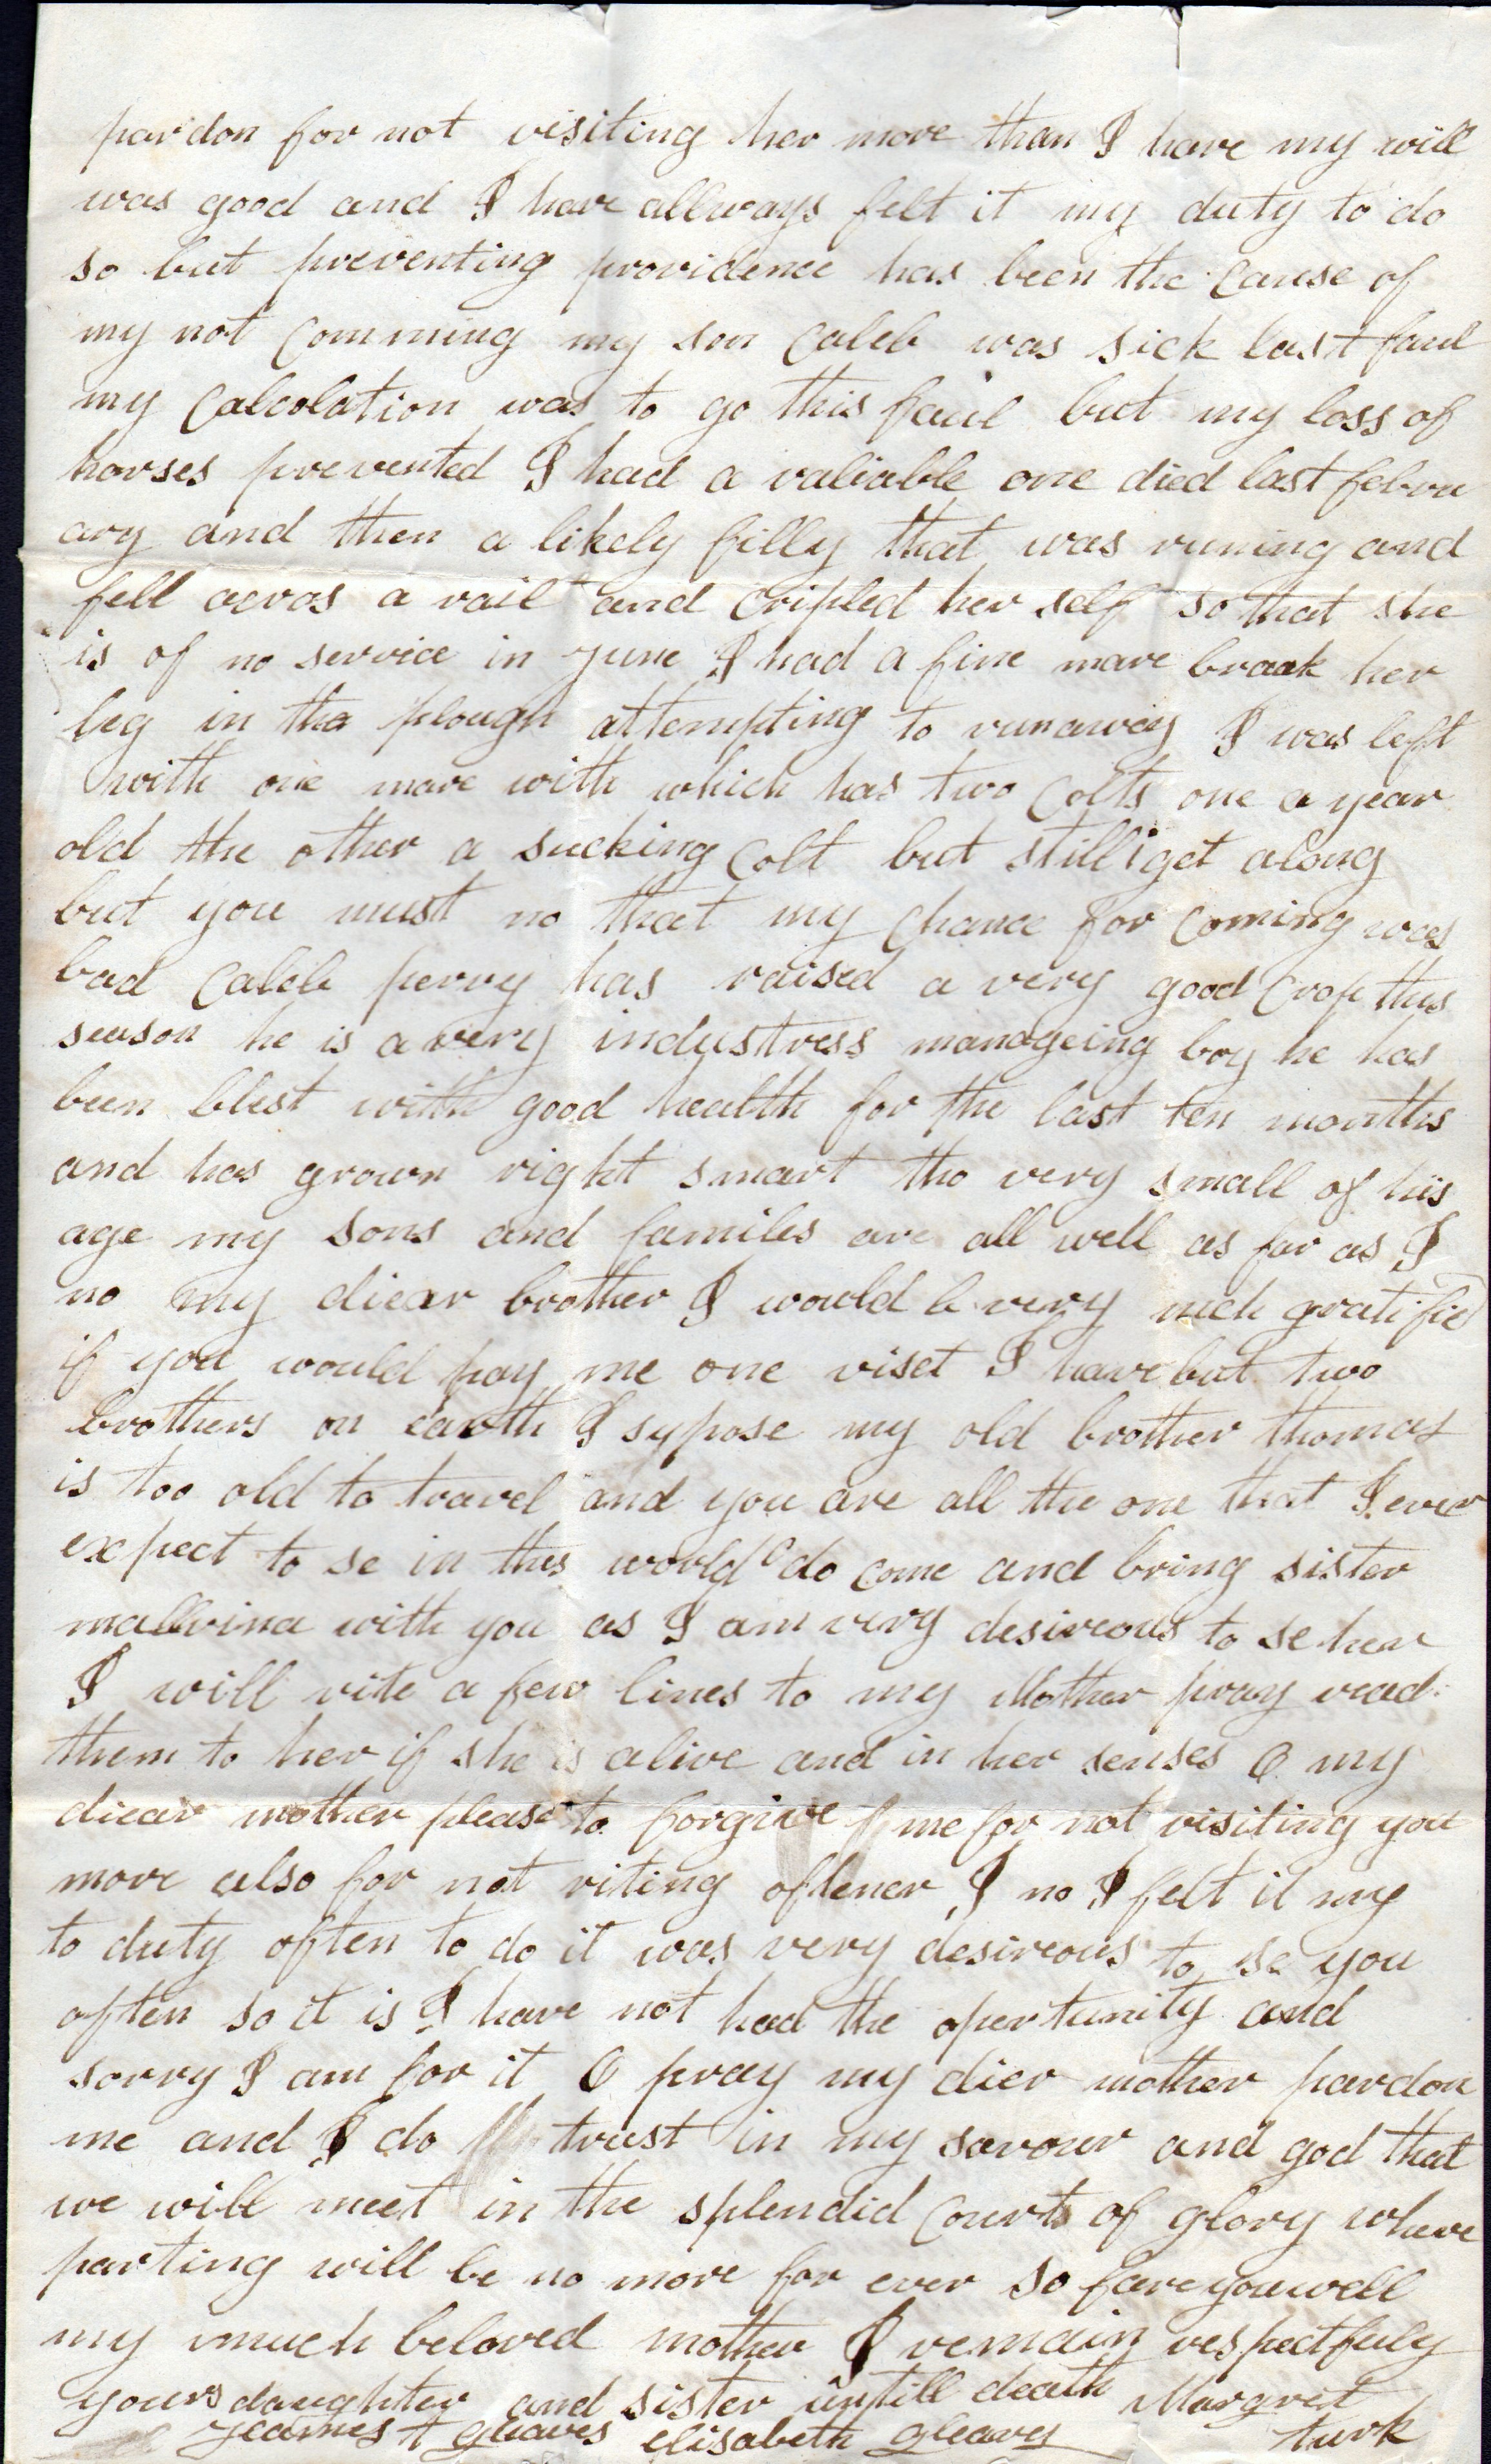 pardon for not visiting her more than I have my will
was good and I have allways felt it my duty to do
so but preventing providence has been the cause of
my not comming my son Caleb was sick last faul
my calcolation was to go this faul but my loss of
horses prevented I had a valiable one died last febru
ary and then a likely filly that was runing and
fell acros a rail and cripled her self so that she
is of no service in june I had a fine mare braak her
leg in tha plough attempting to runaway I was left
with one mare with which has two colts one a year
old the other a sucking colt but still i get along
but you must no that my chance for coming was
bad Caleb perry has raised a very good crop this
season he is a very industress manageing boy he has
been blest with good health for the last ten months
and has grown right smart tho very small of his
age my sons and familes are all well as far as I
no my diear brother I would be very much gratified
if you would pay me one viset I have but two
brothers on earth I sypose my old brother thomas
is too old to travel and you are all the one that I ever
expect to se in this world o do come and bring sister
mallvina with you as I am very desireous to se her
I will rite a few lines to my Mother pray read
them to her if she is alive and in her senses O my
diear mother please to forgive me for not visiting you
more also for not riting oftener I no I felt it my
to duty often to do it was very desireous to se you
often so it is I have not had the opertunity and
sorry I am for it O pray my dier mother pardon
me and I do trust in my savour and god that
we will meet in the splendid courts of glory where
parting will be no more for ever so fare you well
my much beloved mother I remain respectfuly
yours daughter and sister untill death Margret
jeames t gleaves elisabeth gleavs turk